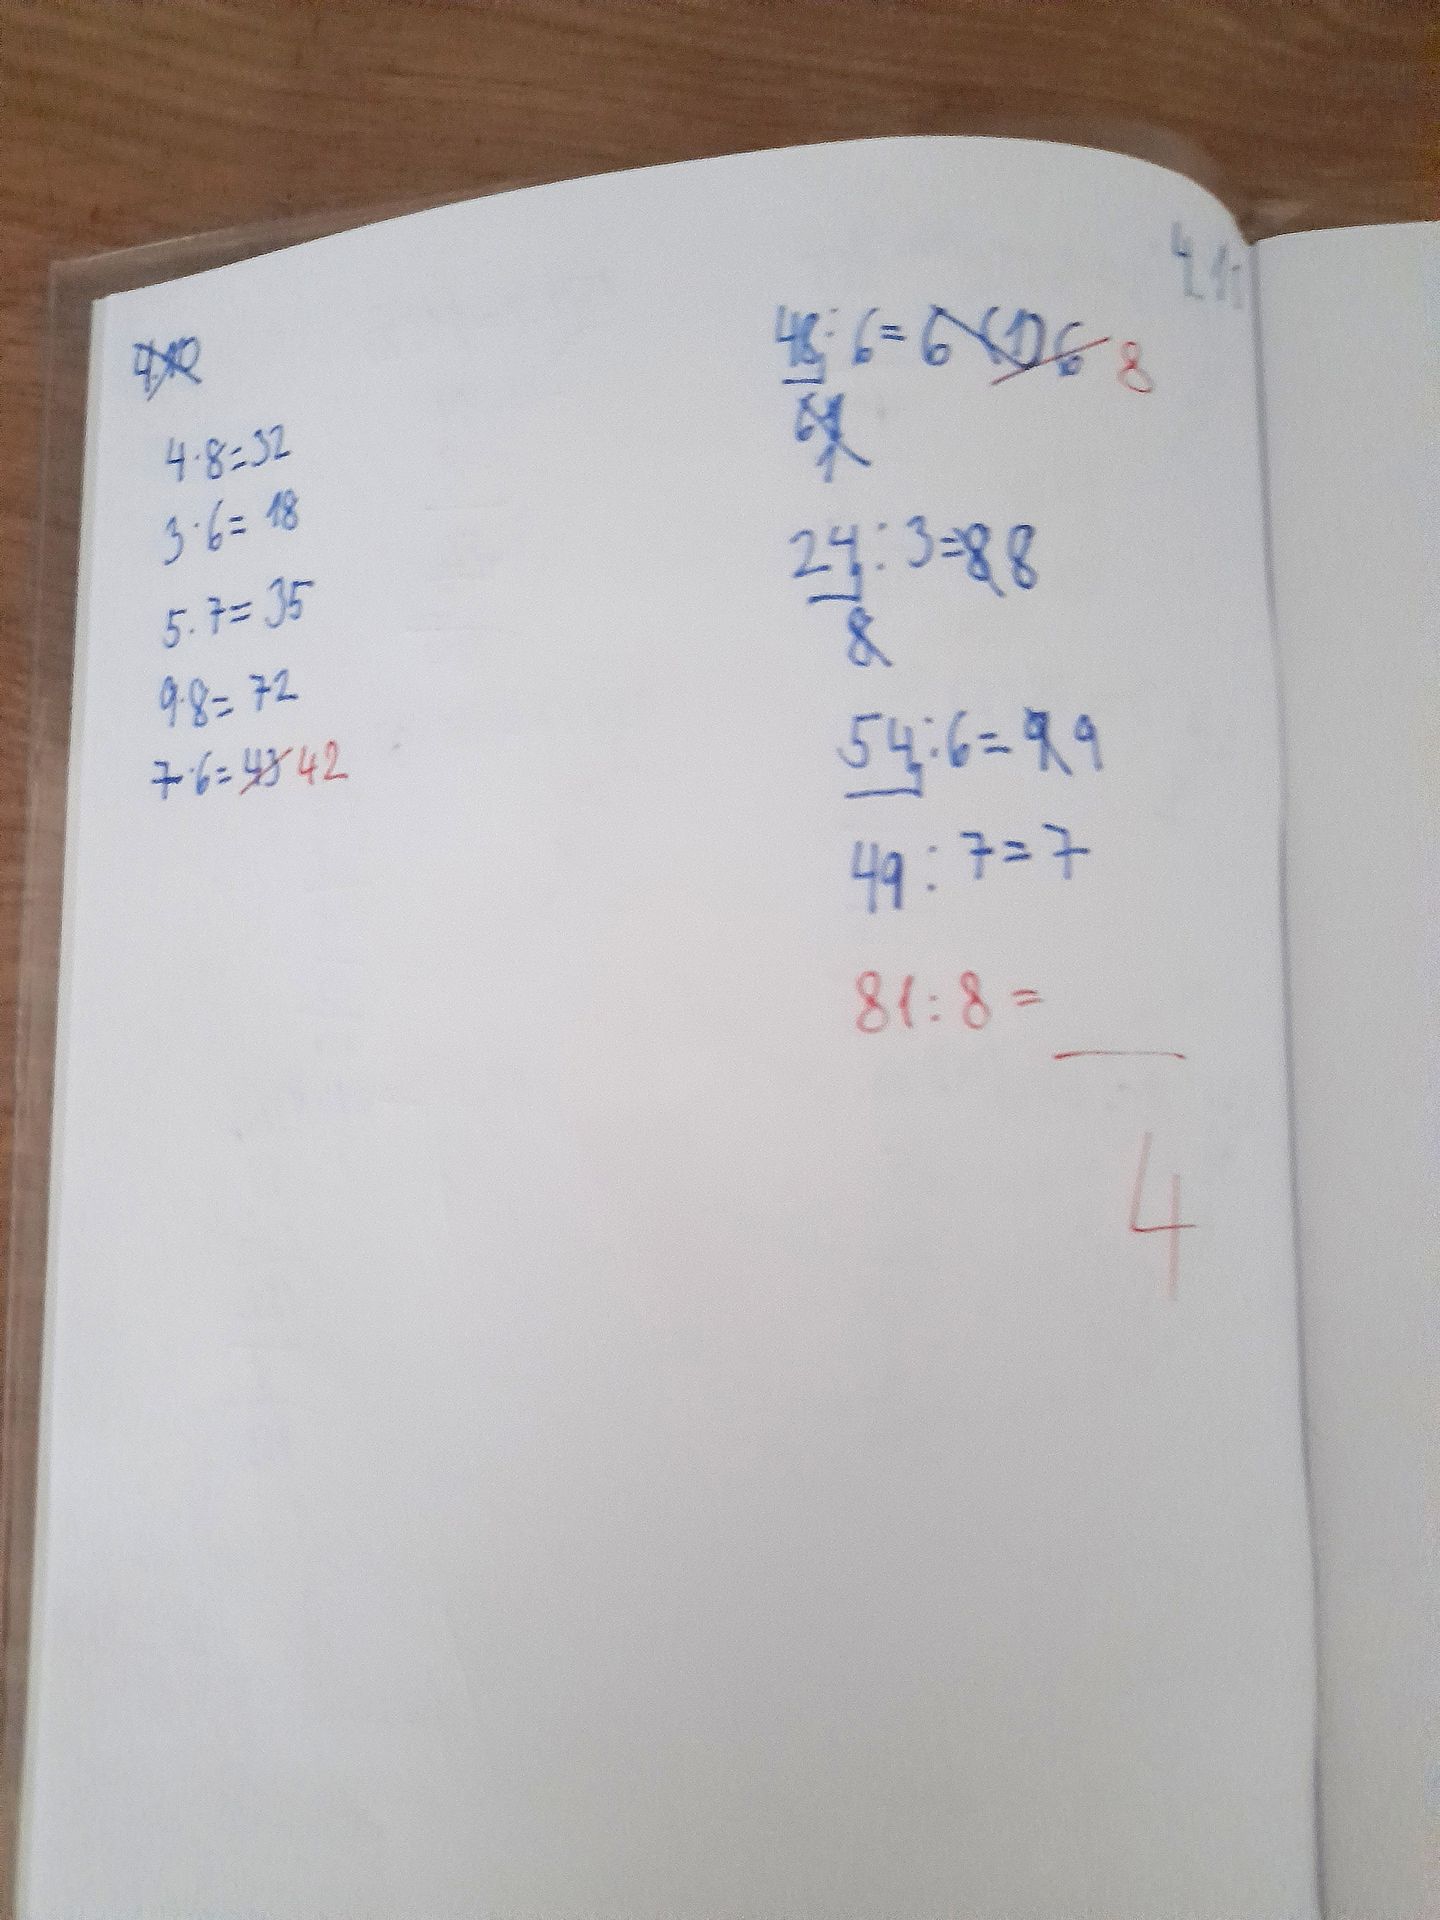 4·8=32
3·6=18
5·7=35
9·8=72
7·6=43 42
48:6=6 (1) 6 8
24:3=8 8
8
54:6=9 9
49:7=7
81:8=
4